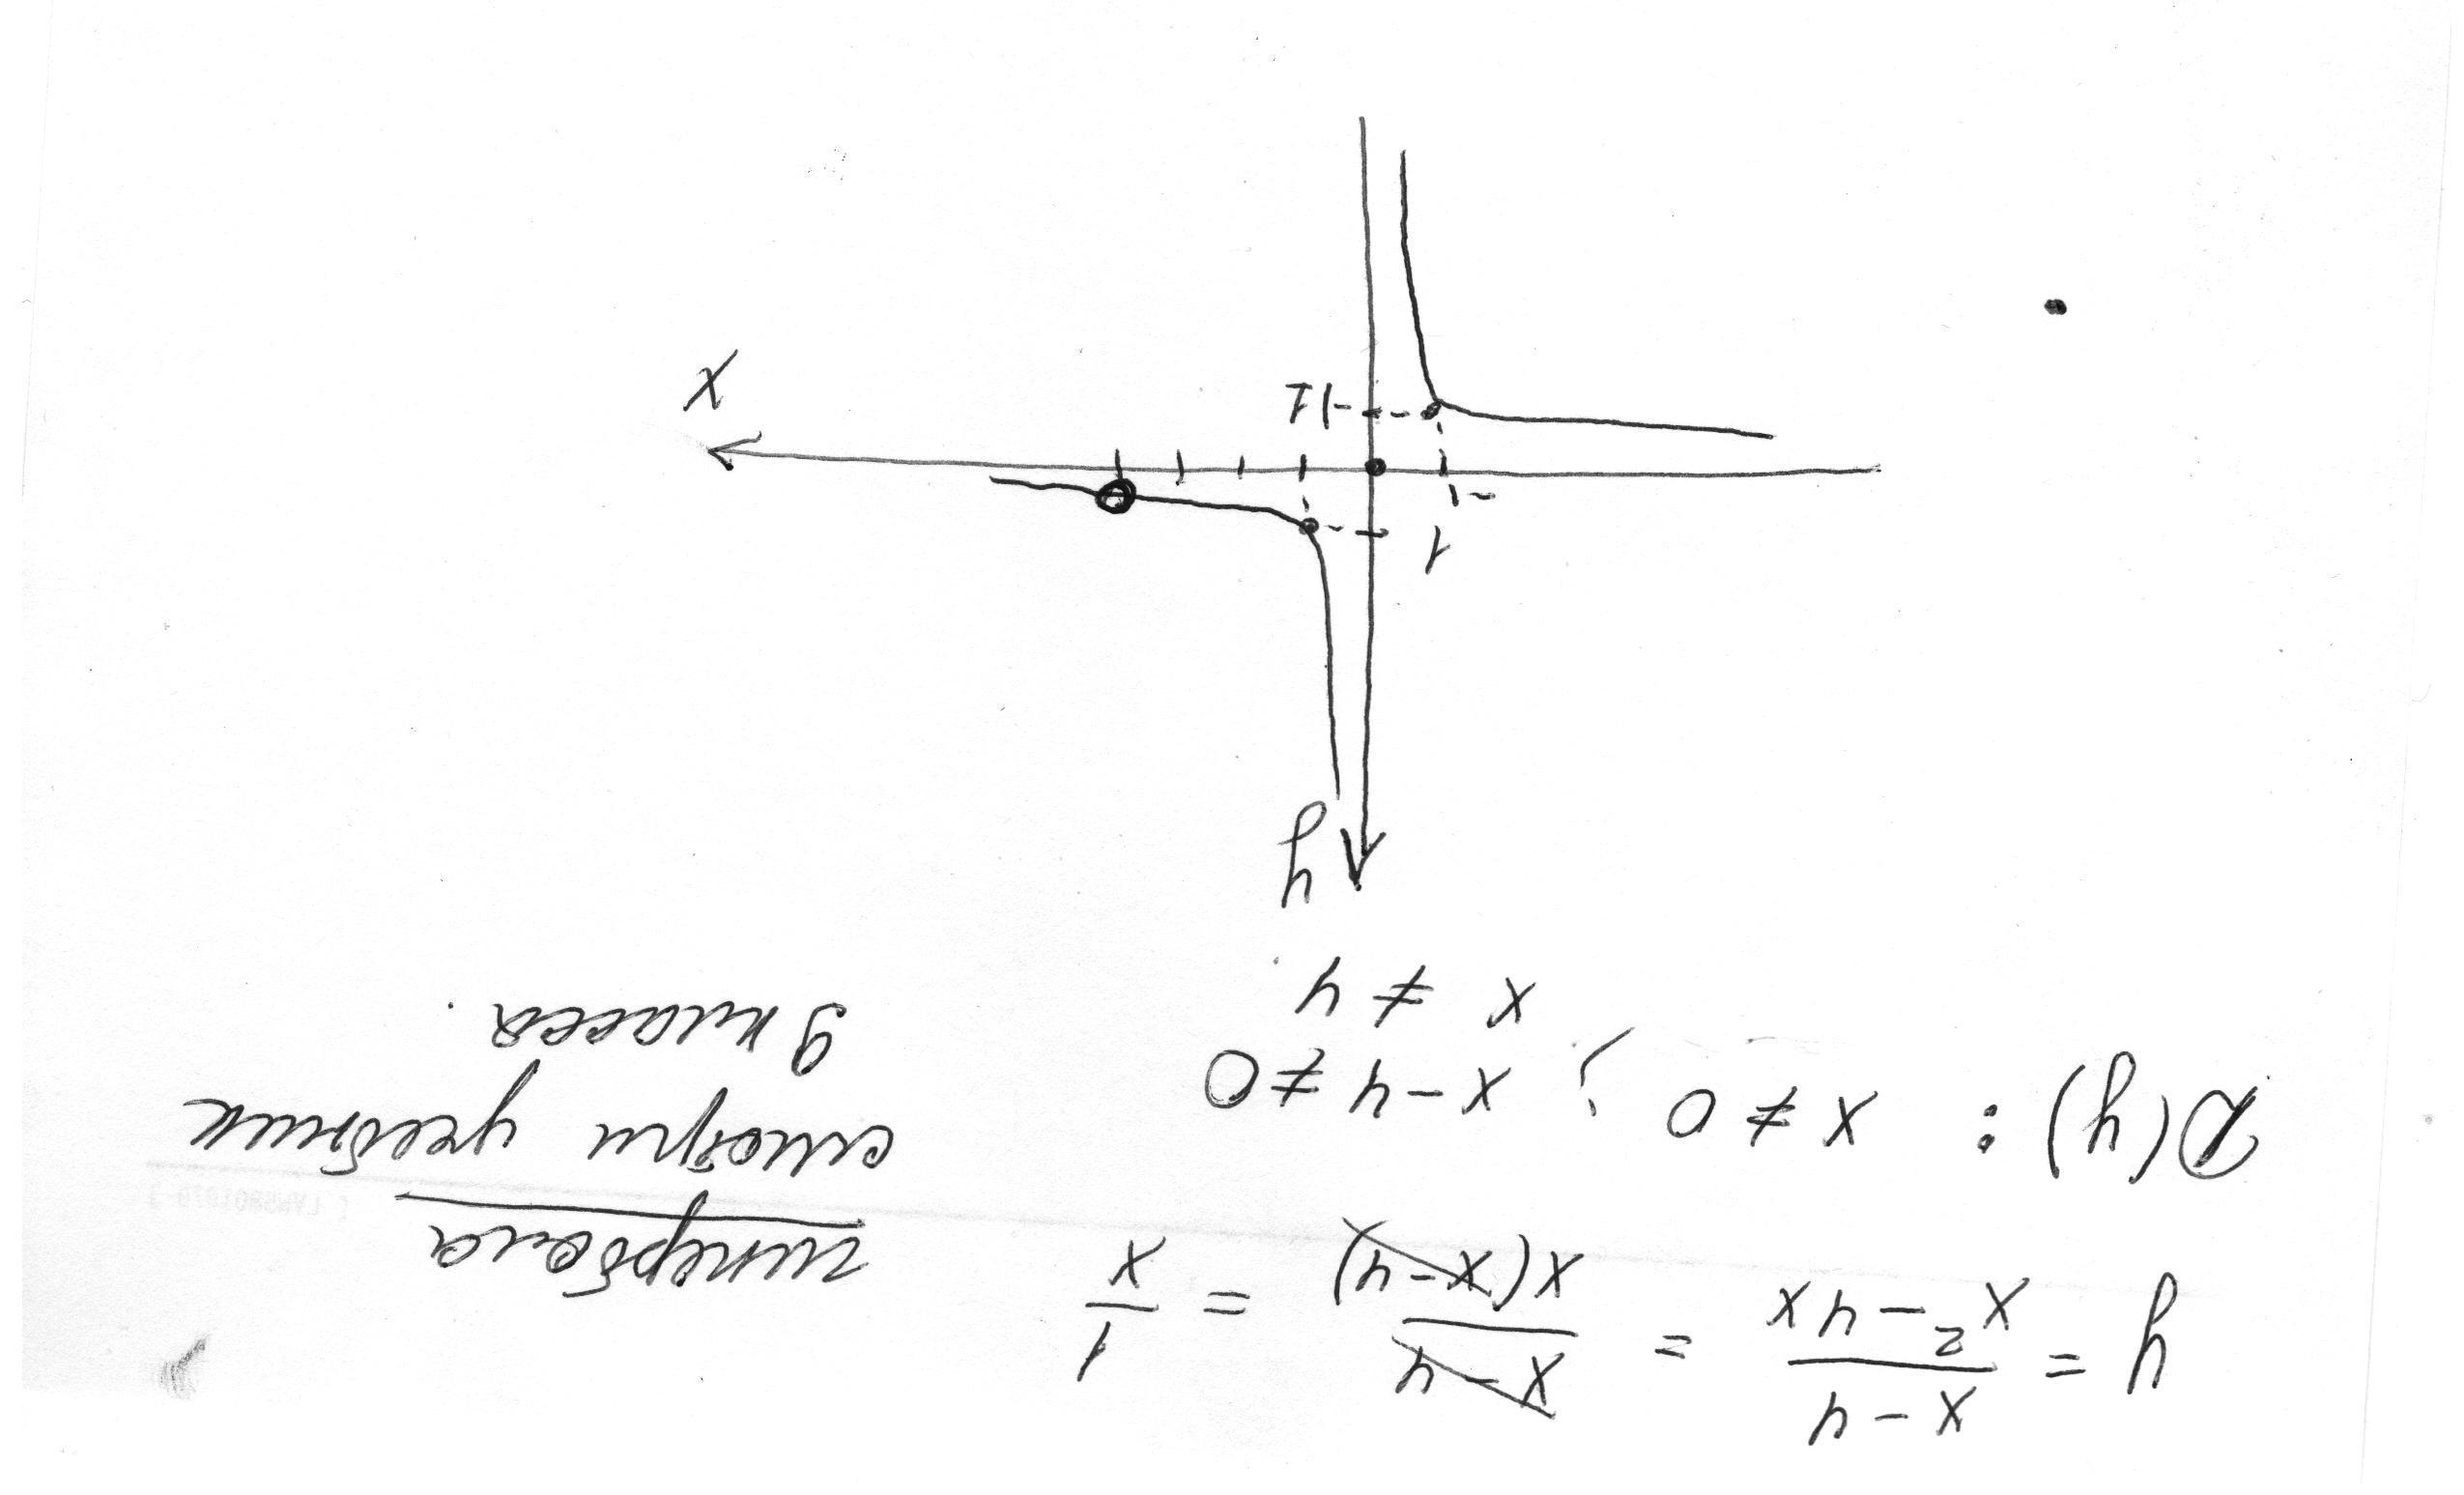 y = \frac{x-4}{x^2-4x} = \frac{x-4}{x(x-4)} = \frac{1}{x} гипербола
D(y): x ≠ 0; x-4 ≠ 0 смотри учебник
x ≠ 4 9 класса.
y
1
-1
-1
x